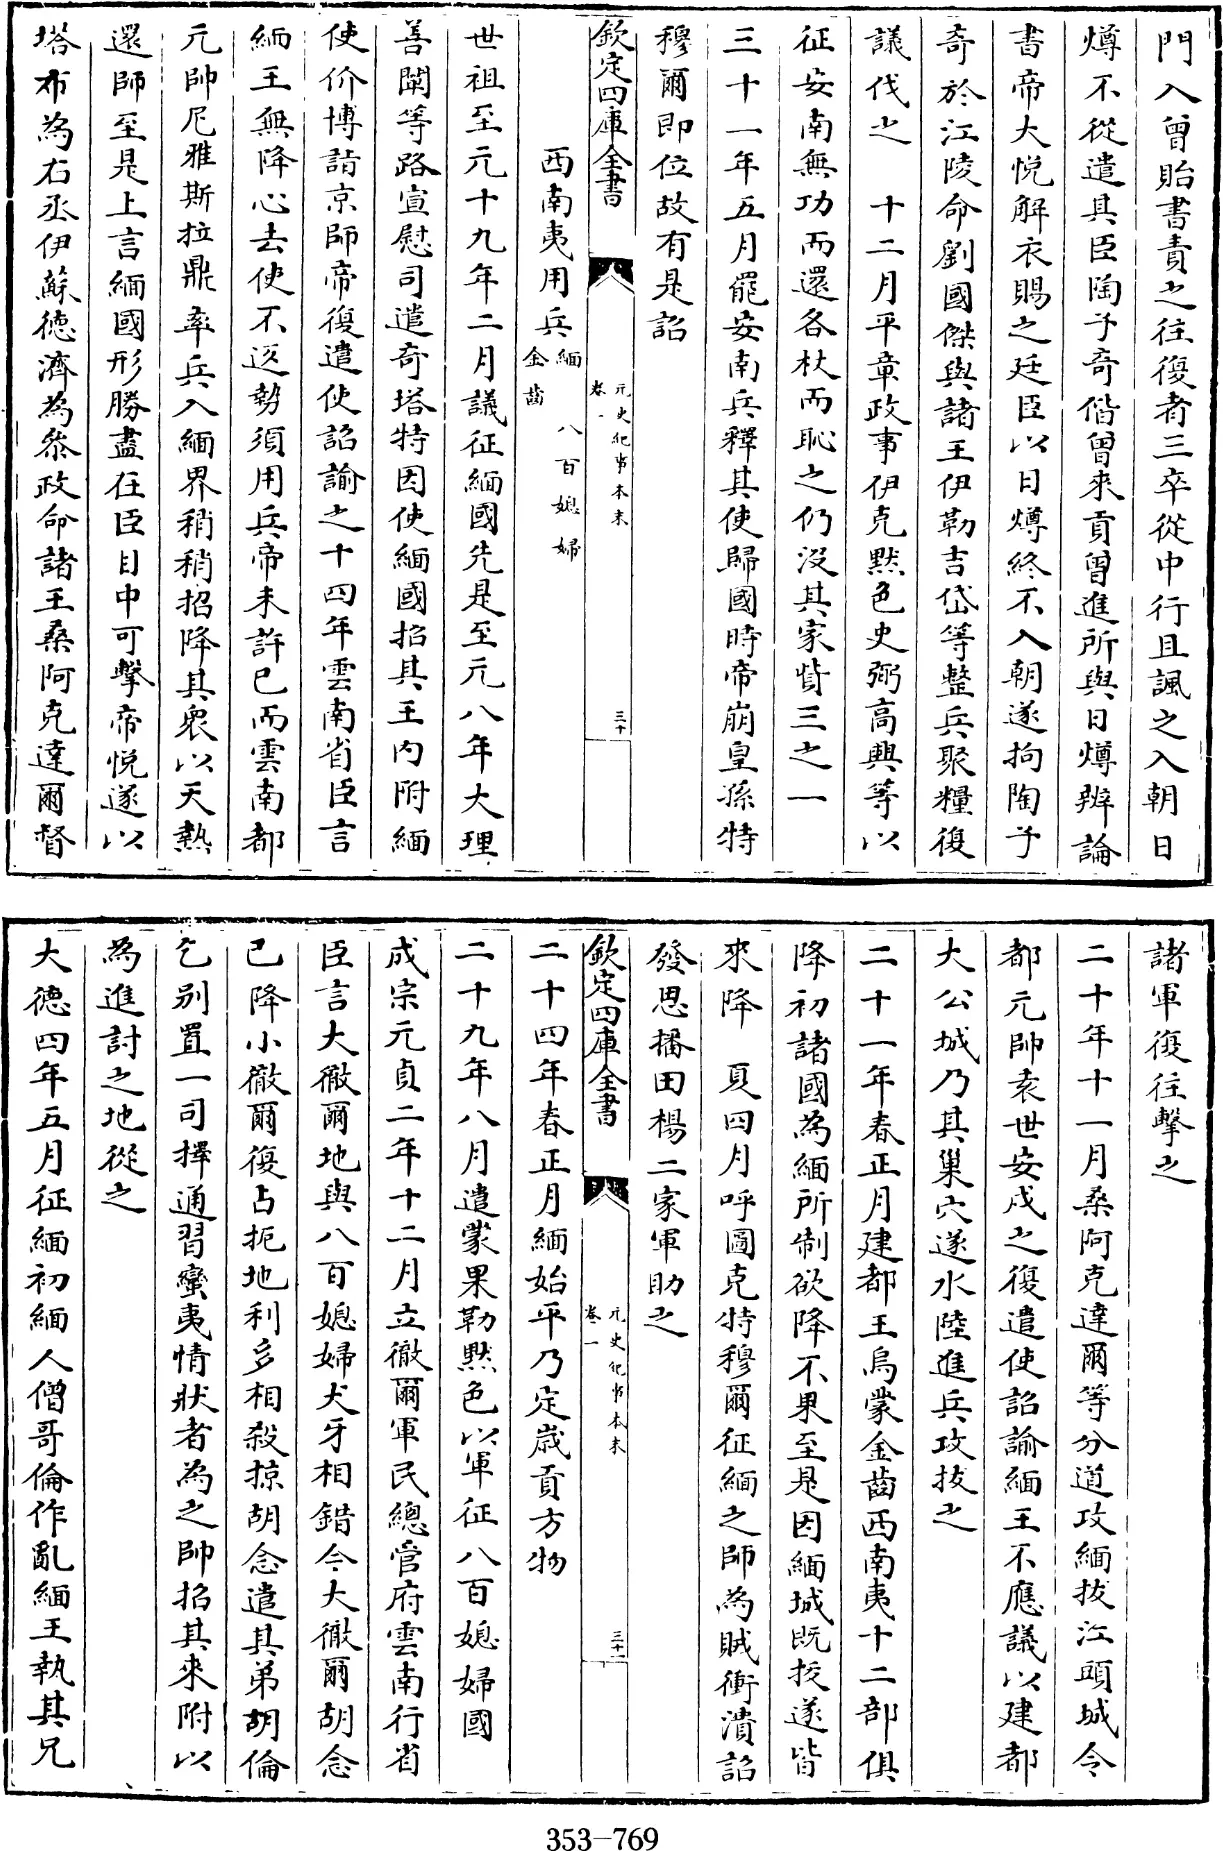 門入曾貽書責之往復者三卒從中行且諷之入朝日
燇不從遣其臣陶子奇偕曾來貢曾進所與日燇辨論
書帝大悅解衣賜之廷臣以日燇終不入朝遂拘陶子
奇於江陵命劉國傑與諸王伊勒吉岱等整兵聚糧復
議伐之　十二月平章政事伊克黙色史弼高興等以
征安南無功而還各杖而恥之仍没其家貲三之一
三十一年五月罷安南兵釋其使歸國時帝崩皇孫特
穆爾即位故有是詔
欽定四庫全書
元史紀事本末
卷一
三十
西南夷用兵緬　八百媳婦
金齒
世祖至元十九年二月議征緬國先是至元八年大理
善闡等路宣慰司遣奇塔特因使緬國招其王内附緬
使价博詣京師帝復遣使詔諭之十四年雲南省臣言
緬王無降心去使不返勢須用兵帝未許已而雲南都
元帥尼雅斯拉鼎率兵入緬界稍稍招降其衆以天熱
還師至是上言緬國形勝盡在臣目中可擊帝悅遂以
塔布為右丞伊蘇德濟為叅政命諸王桑阿克達爾督
諸軍復往擊之
二十年十一月桑阿克達爾等分道攻緬拔江頭城令
都元帥袁世安戍之復遣使詔諭緬王不應議以建都
大公城乃其巢穴遂水陸進兵攻拔之
二十一年春正月建都王烏蒙金齒西南夷十二部俱
降初諸國為緬所制欲降不果至是因緬城既拔遂皆
來降　夏四月呼圖克特穆爾征緬之師為賊衝潰詔
發思播田楊二家軍助之
欽定四庫全書
元史紀事本末
卷一
三十一
二十四年春正月緬始平乃定歲貢方物
二十九年八月遣蒙果勒黙色以軍征八百媳婦國
成宗元貞二年十二月立徹爾軍民總管府雲南行省
臣言大徹爾地與八百媳婦犬牙相錯今大徹爾胡念
已降小徹爾復占扼地利多相殺掠胡念遣其弟胡倫
乞别置一司擇通習蠻夷情狀者為之帥招其來附以
為進討之地從之
大德四年五月征緬初緬人僧哥倫作亂緬王執其兄
353-769